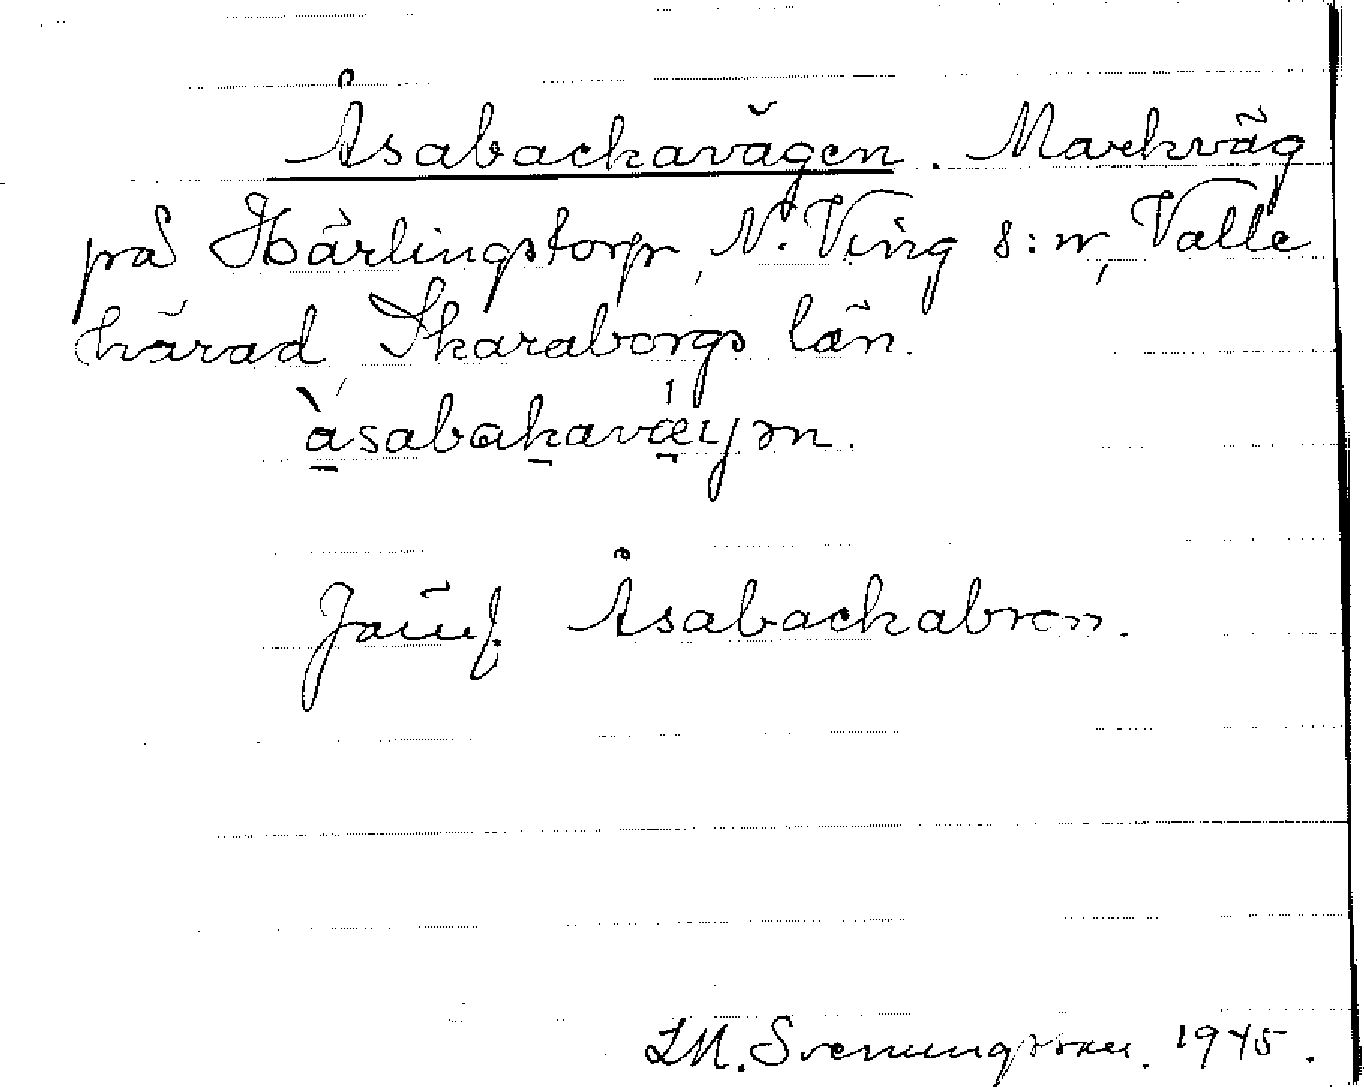 Åsabackavägen. Markväg
på Härlingstorp, N. Ving s:n, Valle
härad, Skaraborgs län.
Jämf. Åsabackabron.
I.M. Svenningsson. 1945.